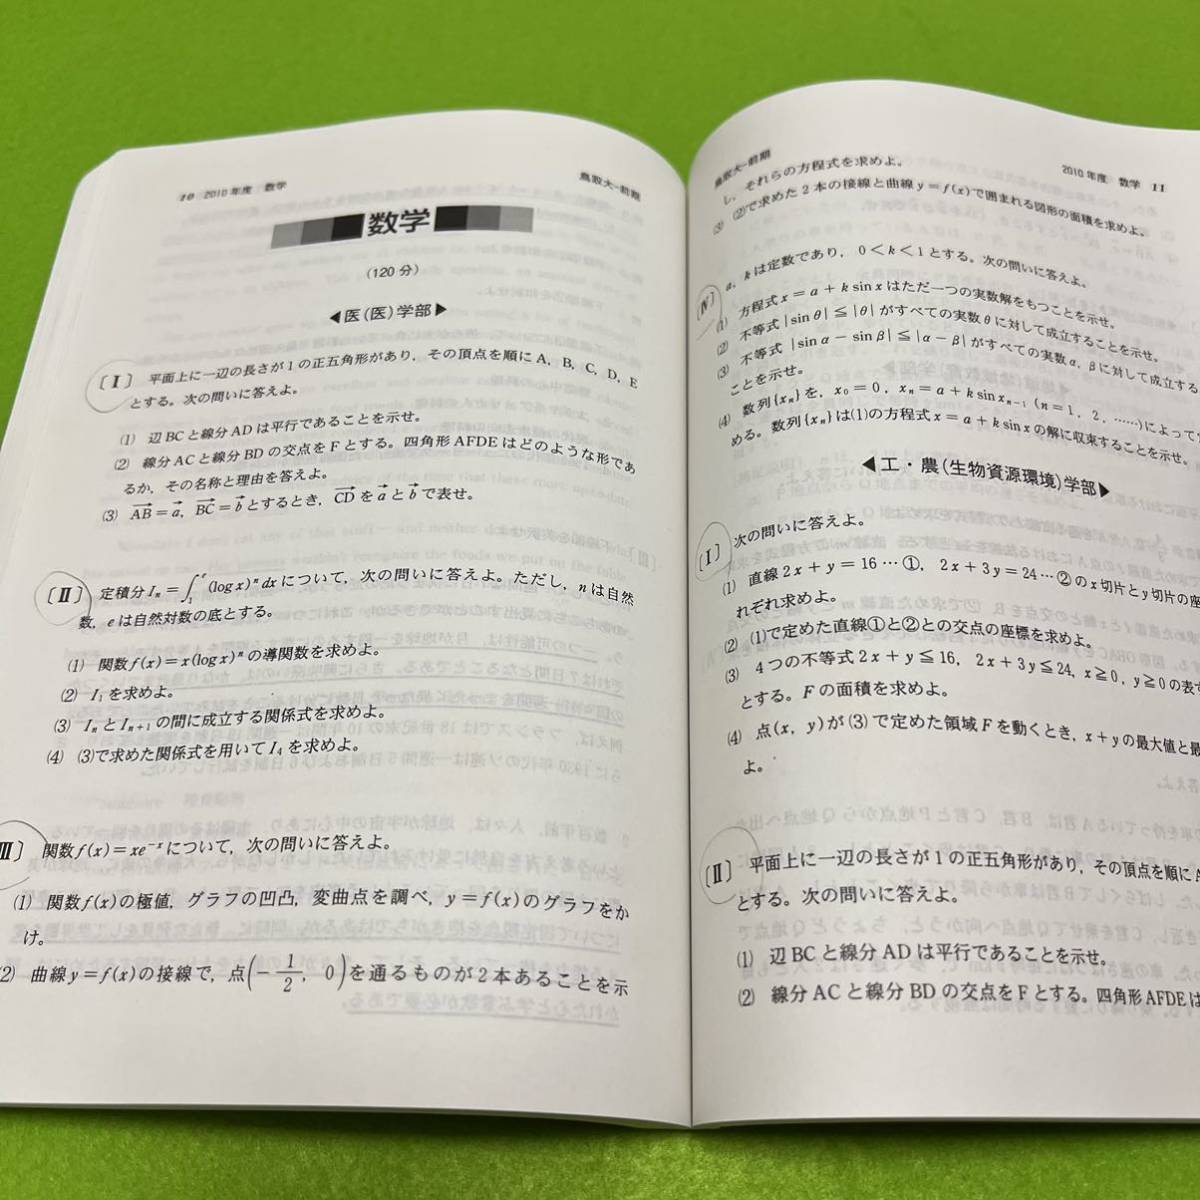 10 2010年度 数学
鳥取大-前期
数学
(120分)
◀医(医)学部▶
〔Ⅰ〕 平面上に一辺の長さが1の正五角形があり，その頂点を順にA，B，C，D，E
とする。次の問いに答えよ。
(1) 辺BCと線分ADは平行であることを示せ。
(2) 線分ACと線分BDの交点をFとする。四角形AFDEはどのような形であ
るか，その名称と理由を答えよ。
(3) AB→=a→，BC→=b→とするとき，CD→をa→とb→で表せ。
〔Ⅱ〕 定積分Iₙ=∫₁ᵉ(log x)ⁿdxについて，次の問いに答えよ。ただし，nは自然
数，eは自然対数の底とする。
(1) 関数f(x)=x(log x)ⁿの導関数を求めよ。
(2) I₁を求めよ。
(3) IₙとIₙ₊₁の間に成立する関係式を求めよ。
(4) (3)で求めた関係式を用いてI₄を求めよ。
Ⅲ〕 関数f(x)=xe⁻ˣについて，次の問いに答えよ。
(1) 関数f(x)の極値，グラフの凹凸，変曲点を調べ，y=f(x)のグラフをか
け。
(2) 曲線y=f(x)の接線で，点(-1/2, 0)を通るものが2本あることを示
鳥取大-前期
2010年度 数学 11
し，それらの方程式を求めよ。
(3) (2)で求めた2本の接線と曲線y=f(x)で囲まれる図形の面積を求めよ。
〔Ⅳ〕 a，kは定数であり，0<k<1とする。次の問いに答えよ。
(1) 方程式x=a+k sin xはただ一つの実数解をもつことを示せ。
(2) 不等式|sin θ|≦|θ|がすべての実数θに対して成立することを示せ。
(3) 不等式|sin α-sin β|≦|α-β|がすべての実数α，βに対して成立する
ことを示せ。
(4) 数列{xₙ}を，x₀=0，xₙ=a+k sin xₙ₋₁ (n=1，2，……)によって
める。数列{xₙ}は(1)の方程式x=a+k sin xの解に収束することを示せ。
◀工・農(生物資源環境)学部▶
〔Ⅰ〕 次の問いに答えよ。
(1) 直線2x+y=16…①，2x+3y=24…②のx切片とy切片の座
れぞれ求めよ。
(2) (1)で定めた直線①と②との交点の座標を求めよ。
(3) 4つの不等式2x+y≦16，2x+3y≦24，x≧0，y≧0の表す
とする。Fの面積を求めよ。
(4) 点(x, y)が(3)で定めた領域Fを動くとき，x+yの最大値と最
よ。
〔Ⅱ〕 平面上に一辺の長さが1の正五角形があり，その頂点を順にA
とする。次の問いに答えよ。
(1) 辺BCと線分ADは平行であることを示せ。
(2) 線分ACと線分BDの交点をFとする。四角形AFDEは